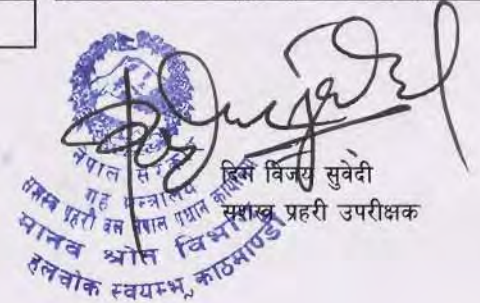 नेपाल सरकार
गृह मन्त्रालय
सशस्त्र प्रहरी बल नेपाल प्रधान कार्यालय
मानव श्रोत विभाग
हलचोक स्वयम्भू, काठमाण्डौ
विजय सुवेदी
सशस्त्र प्रहरी उपरीक्षक